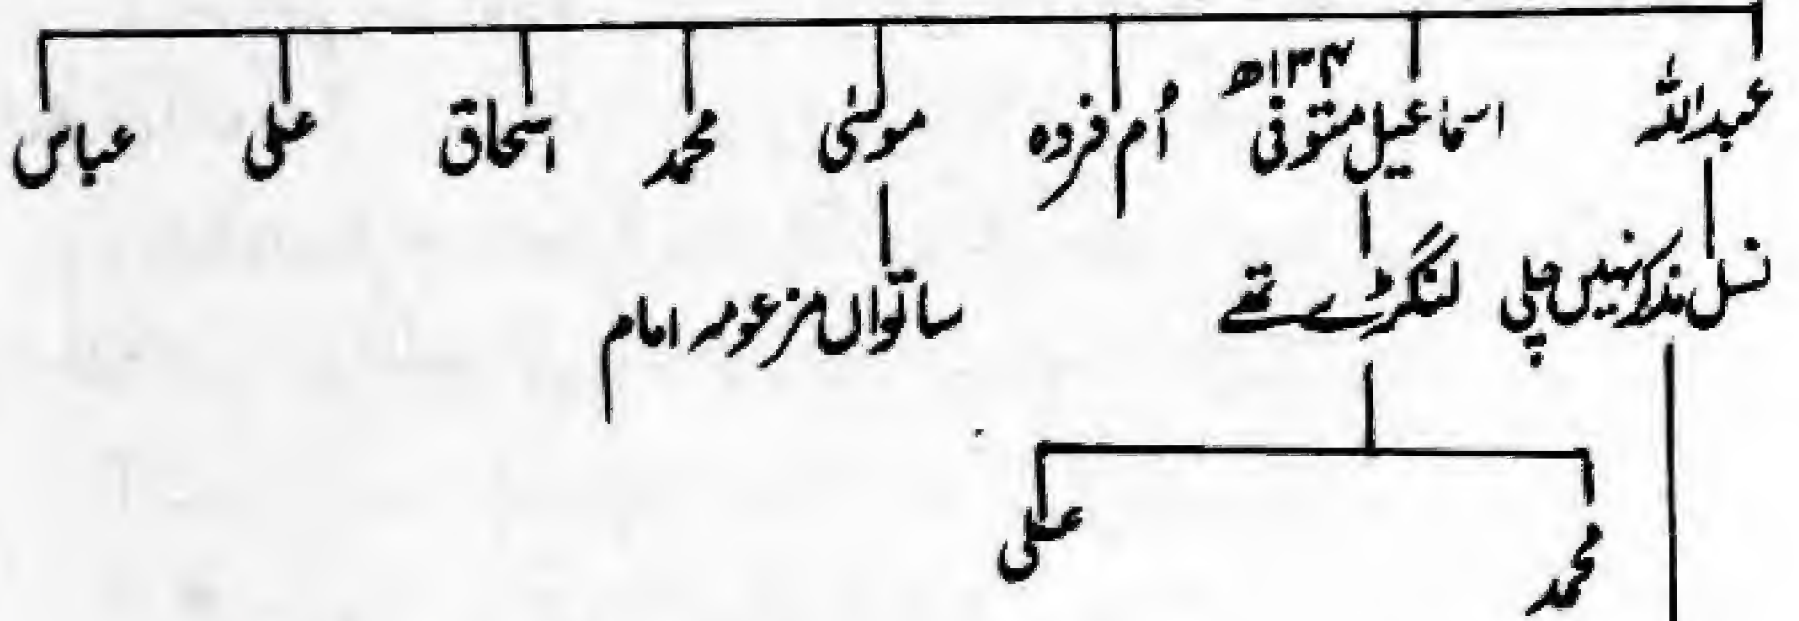 عبداللہ اسماعیل متوفی ۱۳۴ھ اُم فردہ موسیٰ محمد اسحاق علی عباس
نسل مذکر نہیں چلی لنگڑے تھے ساتواں مزعومہ امام
محمد علی